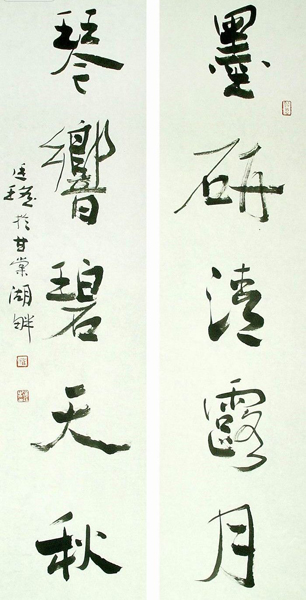 墨研清露月
琴響碧天秋
於甘棠湖畔